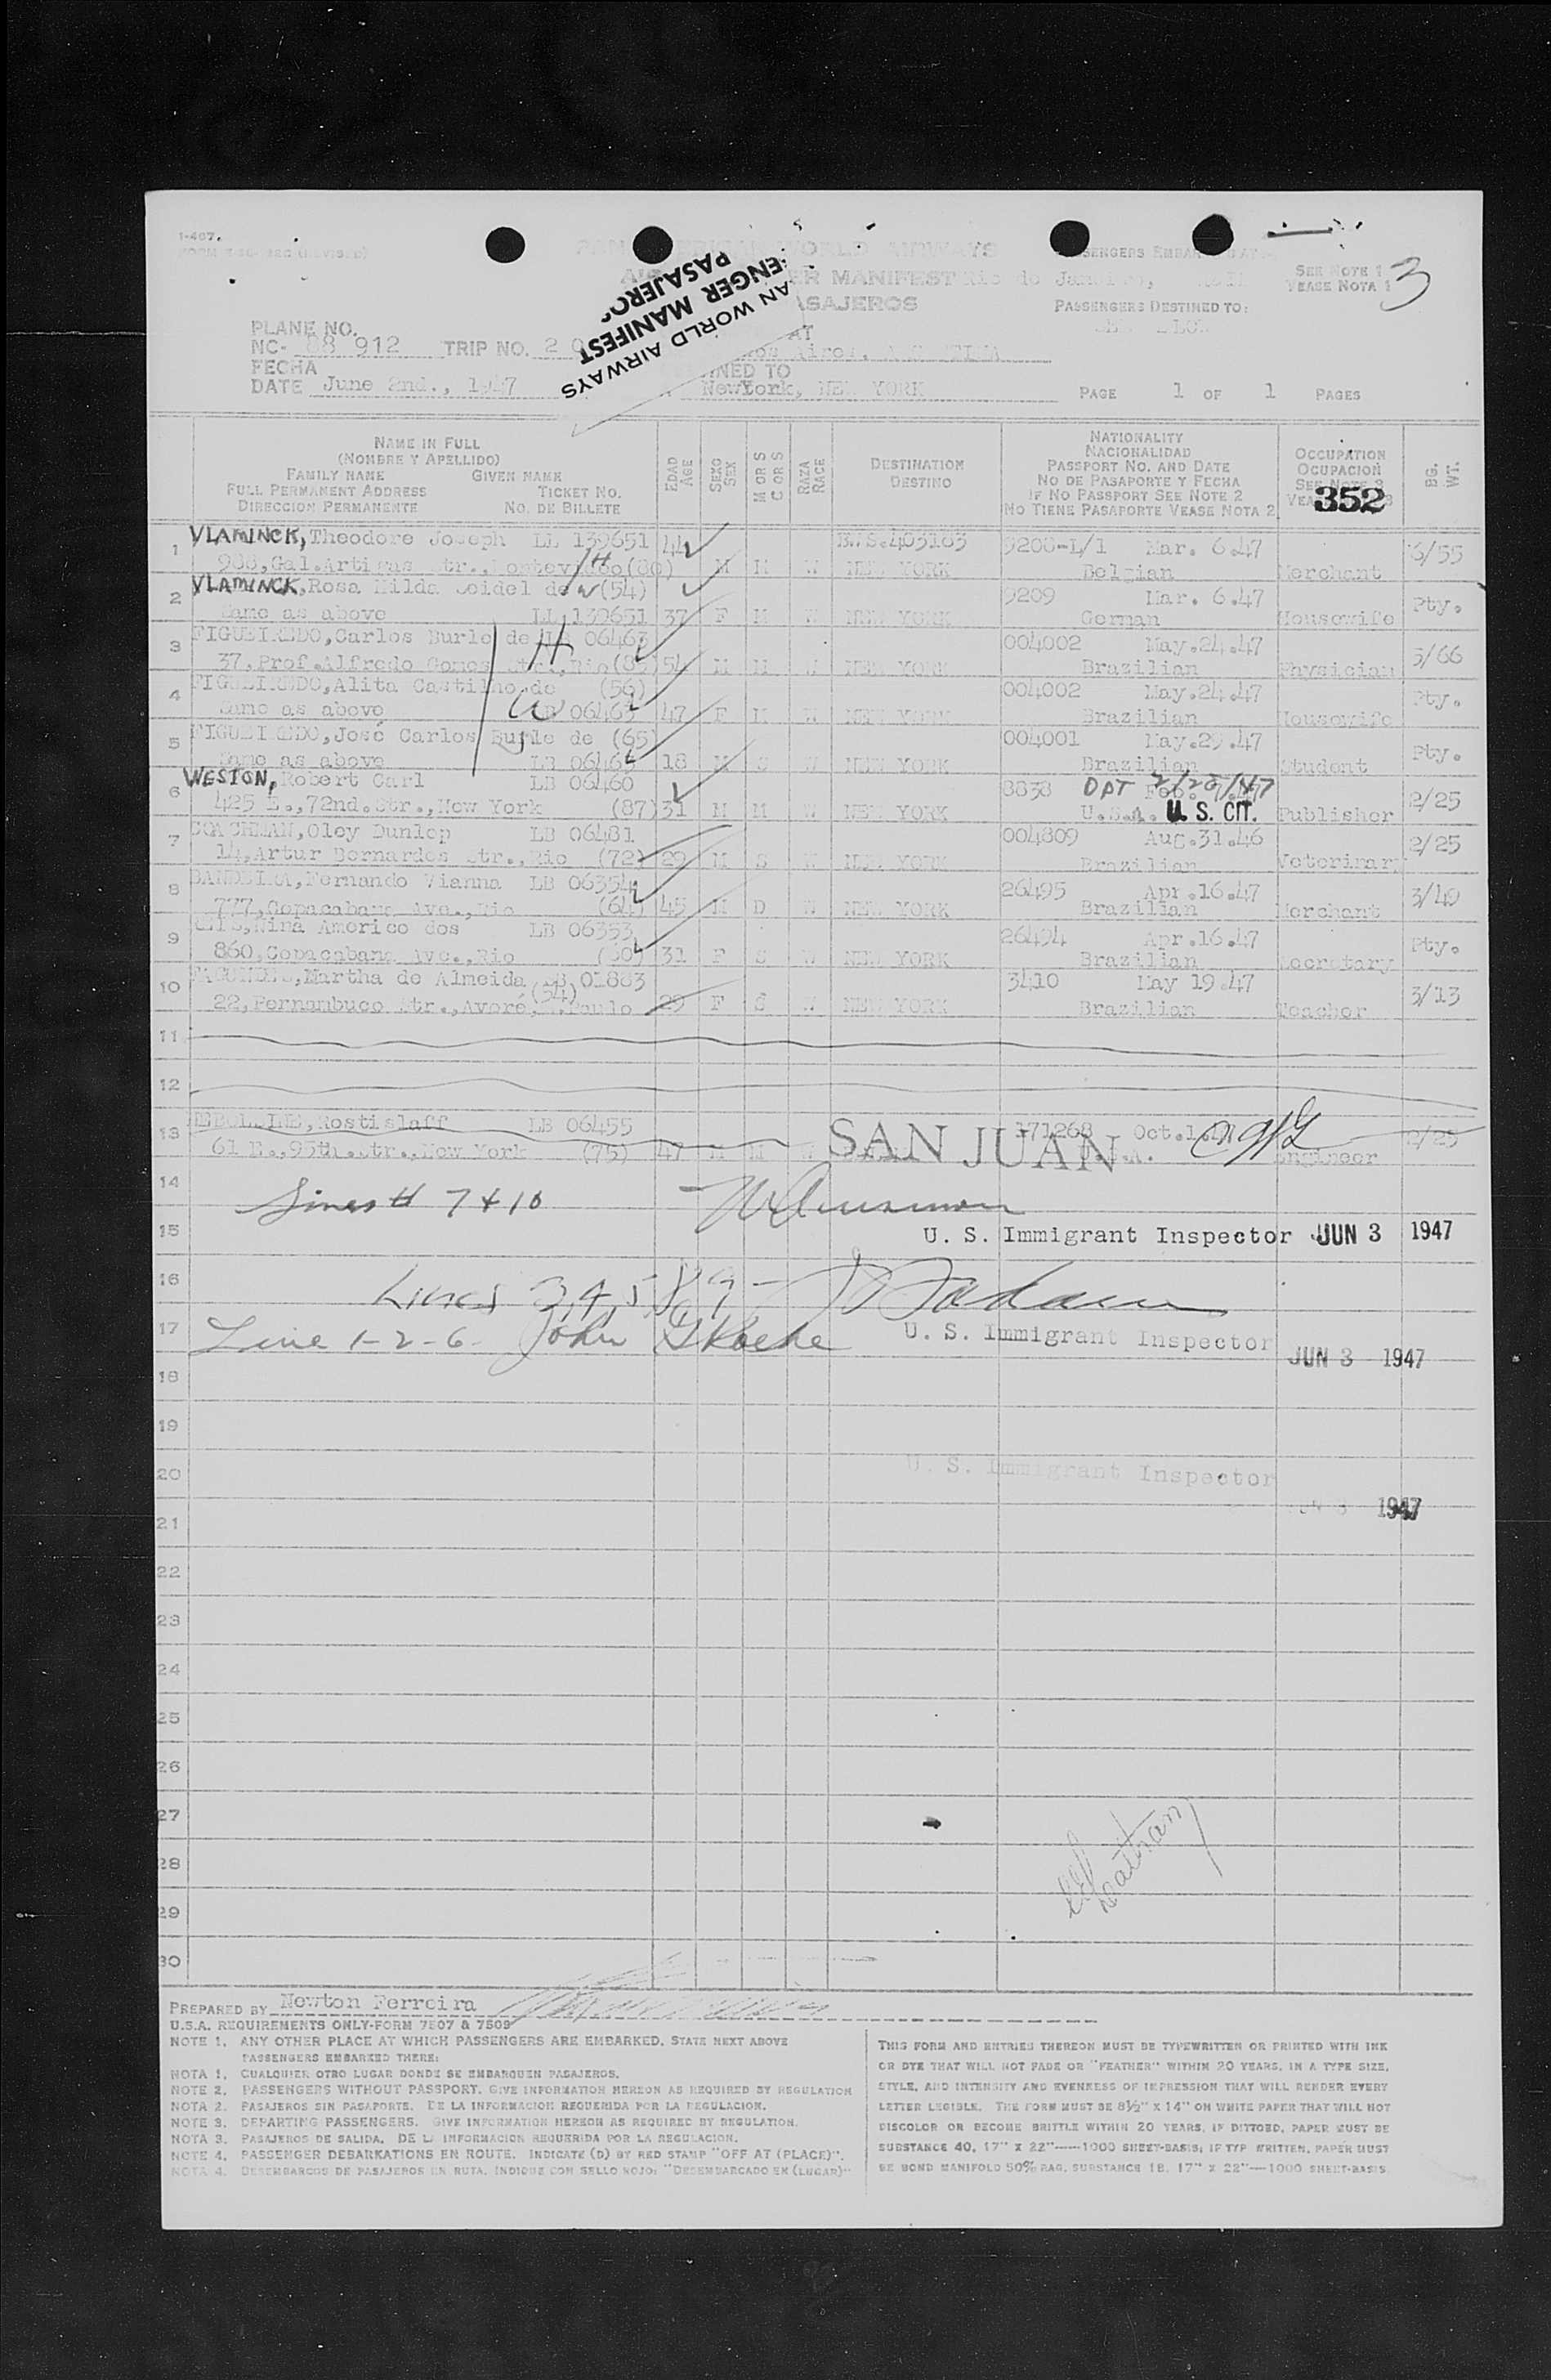 I-407.
WORLD AIRWAYS
MANIFEST
PASAJEROS
AN WORLD AIRWAYS
ENGER MANIFEST
PASAJERO
SEE NOTE 1
VEASE NOTA 1
3
PASSENGERS DESTINED TO:
PLANE NO.
NC- 88 912 TRIP NO. 2
FECHA
DATE June 2nd., 1947
NewYork, NEW YORK
PAGE 1 OF 1 PAGES
NAME IN FULL
(NOMBRE Y APELLIDO)
FAMILY NAME GIVEN NAME
FULL PERMANENT ADDRESS TICKET NO.
DIRECCION PERMANENTE NO. DE BILLETE
EDAD AGE
SEXO SEX
M OR S
C OR S
RAZA RACE
DESTINATION
DESTINO
NATIONALITY
NACIONALIDAD
PASSPORT NO. AND DATE
NO DE PASAPORTE Y FECHA
IF NO PASSPORT SEE NOTE 2
NO TIENE PASAPORTE VEASE NOTA 2
OCCUPATION
OCUPACION
SEE NOTE 3
352
BG. WT.
1 VLAMINCK, Theodore Joseph LB 139651 44 B.V.S.403183 5208-L/1 Mar. 6.47 6/55
988, Gal.Artigas Str., Montevideo (80) M M W NEW YORK Belgian Merchant
2 VLAMINCK, Rosa Hilda Seidel de (54) 5209 Mar. 6.47 Pty.
Same as above LB 139651 37 F M W NEW YORK German Housewife
3 FIGUEIREDO, Carlos Burle de LB 06463 004002 May.24.47 5/66
37, Prof.Alfredo Gomes Str., Rio (85) 54 M M W NEW YORK Brazilian Physician
4 FIGUEIREDO, Alita Castilho de (56) 004002 May.24.47 Pty.
Same as above LB 06463 47 F M W NEW YORK Brazilian Housewife
5 FIGUEIREDO, José Carlos Burle de (65) 004001 May.29.47 Pty.
Same as above LB 06465 18 M S W NEW YORK Brazilian Student
6 WESTON, Robert Carl LB 06460 8838 DPT 2/28/47 2/25
425 E., 72nd. Str., New York (87) 31 M M W NEW YORK U.S.A. U. S. CIT. Publisher
7 COACHMAN, Oley Dunlop LB 06481 004809 Aug.31.46 2/25
14, Artur Bernardes Str., Rio (72) 29 M S W NEW YORK Brazilian Veterinary
8 BANDEIRA, Fernando Vianna LB 06354 26495 Apr.16.47 3/49
777, Copacabana Ave., Rio (64) 45 M D W NEW YORK Brazilian Merchant
9 Nina Americo dos LB 06353 26494 Apr.16.47 Pty.
860, Copacabana Ave., Rio 31 F S W NEW YORK Brazilian Secretary
10 FAGUNDES, Martha de Almeida LB 01883 3410 May 19.47 3/13
22, Pernambuco Str., Avaré, S.Paulo (54) 29 F S W NEW YORK Brazilian Teacher
11
12
13 Rostislaff LB 06455 SAN JUAN 171268 Oct.1. 2/25
61 E., 95th. Str., New York (75) 47 M M W Engineer
14 Lines # 7 & 10
15 U. S. Immigrant Inspector JUN 3 1947
16 Lines 3, 4, 5, 8, 9 -
17 Line 1-2-6- John U. S. Immigrant Inspector
JUN 3 1947
18
19
20 U. S. Immigrant Inspector
JUN 3 1947
21
22
23
24
25
26
27
28
29
30
PREPARED BY Newton Ferreira
U.S.A. REQUIREMENTS ONLY-FORM 7507 & 7509
NOTE 1. ANY OTHER PLACE AT WHICH PASSENGERS ARE EMBARKED. STATE NEXT ABOVE
PASSENGERS EMBARKED THERE:
NOTA 1. CUALQUIER OTRO LUGAR DONDE SE EMBARQUEN PASAJEROS.
NOTE 2. PASSENGERS WITHOUT PASSPORT. GIVE INFORMATION HEREON AS REQUIRED BY REGULATION
NOTA 2. PASAJEROS SIN PASAPORTE. DE LA INFORMACION REQUERIDA POR LA REGULACION.
NOTE 3. DEPARTING PASSENGERS. GIVE INFORMATION HEREON AS REQUIRED BY REGULATION.
NOTA 3. PASAJEROS DE SALIDA. DE LA INFORMACION REQUERIDA POR LA REGULACION.
NOTE 4. PASSENGER DEBARKATIONS EN ROUTE. INDICATE (D) BY RED STAMP "OFF AT (PLACE)".
NOTA 4. DESEMBARCOS DE PASAJEROS EN RUTA. INDIQUE CON SELLO ROJO: "DESEMBARCADO EN (LUGAR)"
THIS FORM AND ENTRIES THEREON MUST BE TYPEWRITTEN OR PRINTED WITH INK
OR DYE THAT WILL NOT FADE OR "FEATHER" WITHIN 20 YEARS. IN A TYPE SIZE,
STYLE, AND INTENSITY AND EVENNESS OF IMPRESSION THAT WILL RENDER EVERY
LETTER LEGIBLE. THE FORM MUST BE 8½" X 14" ON WHITE PAPER THAT WILL NOT
DISCOLOR OR BECOME BRITTLE WITHIN 20 YEARS. IF DITTOED, PAPER MUST BE
SUBSTANCE 40, 17" X 22"—1000 SHEET-BASIS; IF TYPEWRITTEN, PAPER MUST
BE BOND MANIFOLD 50% RAG, SUBSTANCE 18, 17" X 22"—1000 SHEET-BASIS